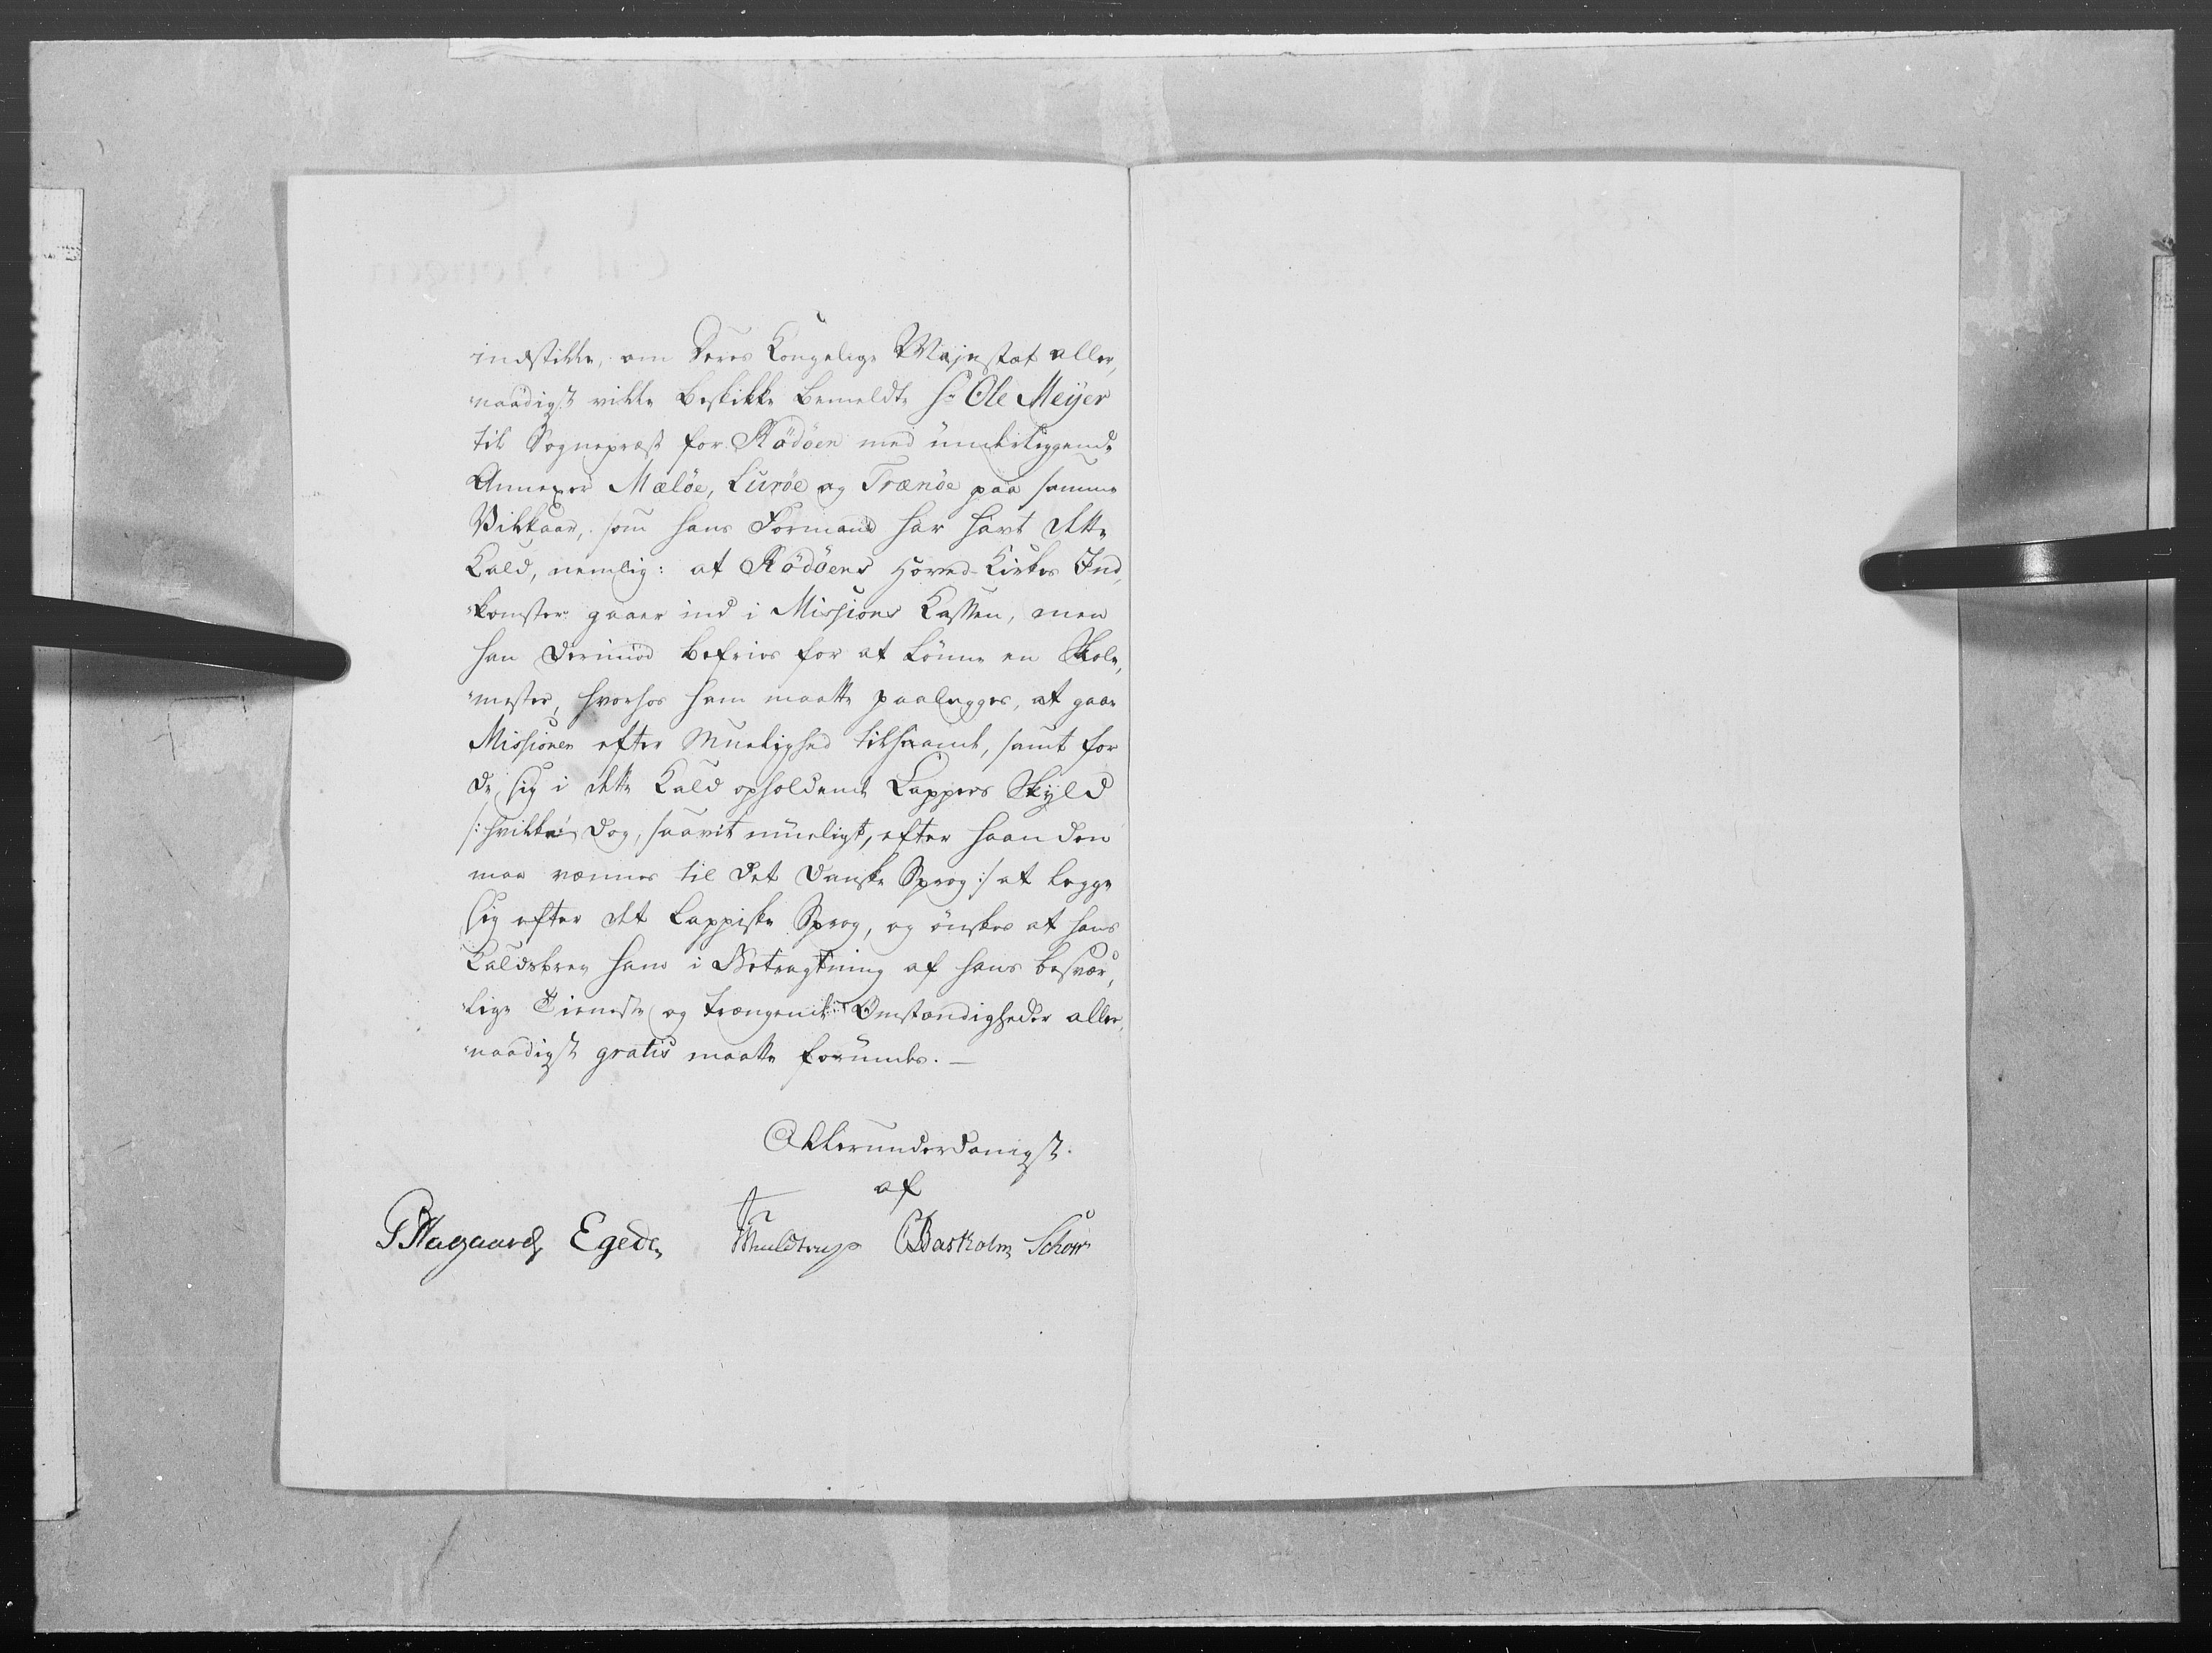 indstille, om Deres Kongelige Majestæt aller,
naadigst vilde beskikke bemeldte Hr Ole Meÿer
til Sognepræst for Rödöen med underliggende
Annexer Mælöe, Luröe og Trænöe paa samme
Vilkaar, som hans Formand har havt dette
Kald, nemlig: at Rödöens Hoved-Kirkes Ind,
komster gaaer ind i Missions Kassen, men
han derimod befries for at lönne en Skole,
mester, hvorhos ham maatte paalegges, at gaae
Missionen efter Muelighed tilhaande, samt for
de sig i dette Kald opholdende Lappers Skÿld
/: hvilke dog, saavit mueligt, efter haanden
maa vænnes til det danske Sprog :/ at legge
sig efter det Lappiske Sprog, og önskes at hans
Kaldsbrev ham i Betragtning af hans besvær,
lige Tieneste og trængende Omstændigheder aller,
naadigst gratis maatte forundes. —
Allerunderdanigst.
af
Egede Muldtrup CBastholm Schow